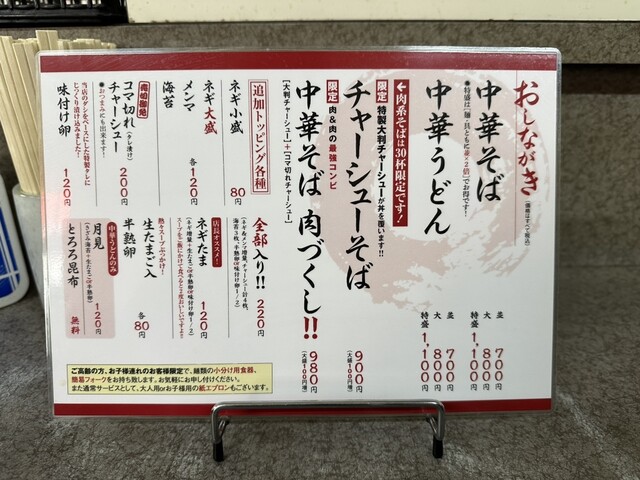 おしながき
(価格はすべて税込)
中華そば
並 700円
大 800円
特盛 1,100円
●特盛は「麺・具ともに並×2倍」でお得です!
中華うどん
並 700円
大 800円
特盛 1,100円
←肉系そばは30杯限定です!
限定 特製大判チャーシューが丼を覆います!!
チャーシューそば 900円
(大盛100円増)
限定 肉&肉の最強コンビ
中華そば 肉づくし!! 980円
(大盛100円増)
【大判チャーシュー】+【コマ切れチャーシュー】
追加トッピング各種
ネギ小盛 80円
ネギ大盛
メンマ
海苔
各120円
売切御免
コマ切れ(タレ漬け)
チャーシュー 200円
●おつまみにも出来ます!
当店のダシをベースにした特製タレに
じっくり漬け込みました!
味付け卵 120円
全部入り!! 220円
(ネギ&メンマ増量、チャーシュー計4枚、
海苔3枚、半熟卵or味付け卵1/2)
店長オススメ!
ネギたま 120円
(ネギ増量+生たまごor半熟卵or味付け卵1/2)
熱々スープぶつかけ!
生たまご入
半熟卵
各80円
中華うどんのみ
月見 120円
とろろ昆布 無料
ご高齢の方、お子様連れのお客様限定で、麺類の小分け用食器、
簡易フォークをお持ち致します。お気軽にお申し付けください。
また通常サービスとして、大人用orお子様用の紙エプロンもございます。